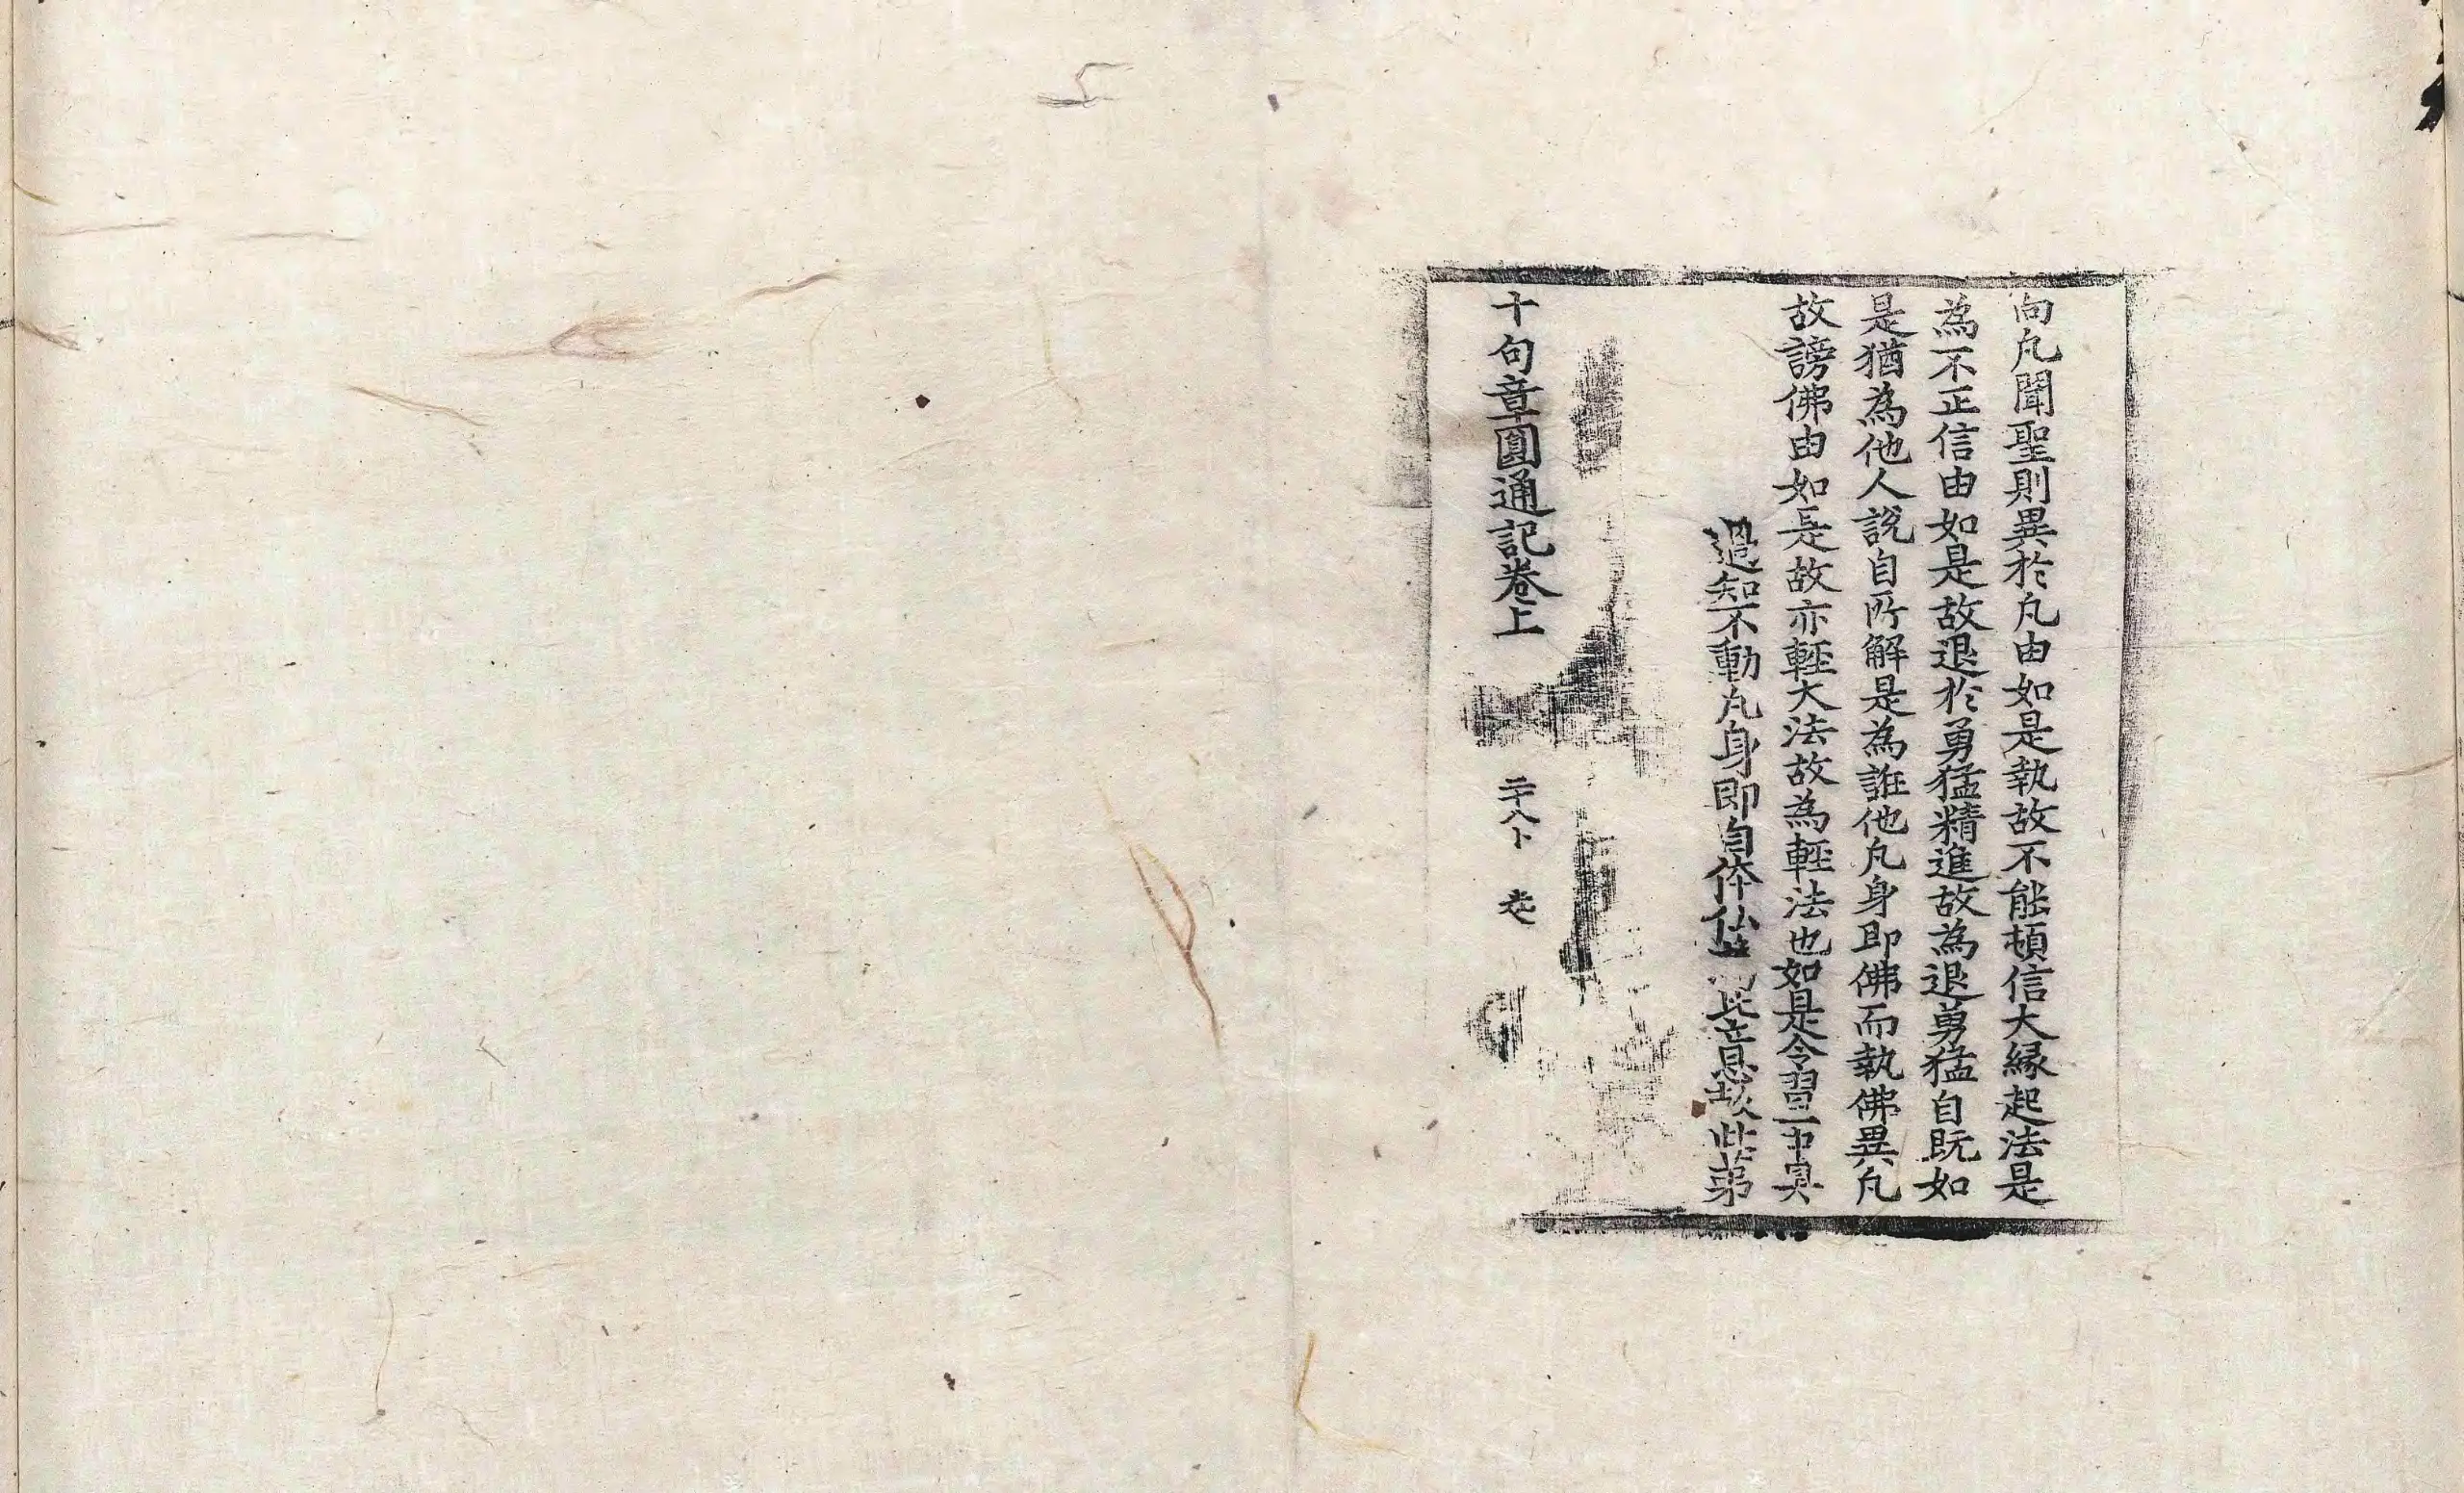 向凡聞聖則異於凡由如是執故不能頓信大緣起法是
為不正信由如是故退於勇猛精進故為退勇猛自既如
是猶為他人說自所解是為誑他凡身即佛而執佛異凡
故謗佛由如是故亦輕大法故為輕法也如是令習
過知不動凡身即自体仏 此意 此第
十句章圓通記卷上 二十八卜